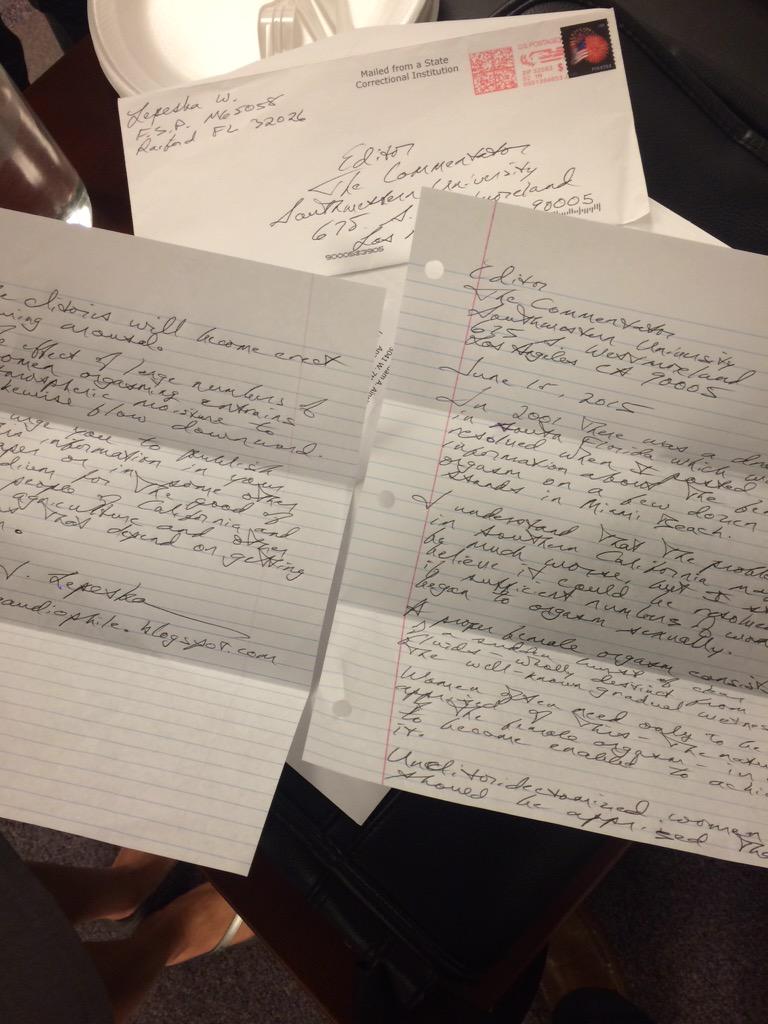 Mailed from a State
Correctional Institution
U.S. POSTAGE
Lepeska W.
F.S.P. M65058
Raiford FL 32026
Editor
The Commentator
Southwestern University
675 S. moreland
Los 90005
90005$3905
e clitoris will become erect
ing arousal.
e effect of large numbers of
omen orgasming entrains
mospheric moisture to
flow downward.
urge you to publish
information in your
aper or in some other
dium for the good of
people of California and
agriculture and other
that depend on getting
.
J. Lepeska
audiophile.blogspot.com
Editor
The Commentator
Southwestern University
635 S. Westmoreland
Los Angeles CA 90005
June 15, 2015
In 2001 there was a dro
in South Florida which wa
resolved when I posted
information about the
orgasm on a few dozen
stands in Miami Beach.
I understand that the proble
in southern California may
be much worse, but I st
believe it could be resolve
if sufficient numbers of wom
began to orgasm sexually.
A proper female orgasm consist
of a sudden burst of clear
fluids wholly distinct from
the well-known gradual wetness
Women often need only to be
apprised of this - the natu
of the female orgasm - in
to become enabled to achie
it.
Unclitoridectomized women
should be apprised tha